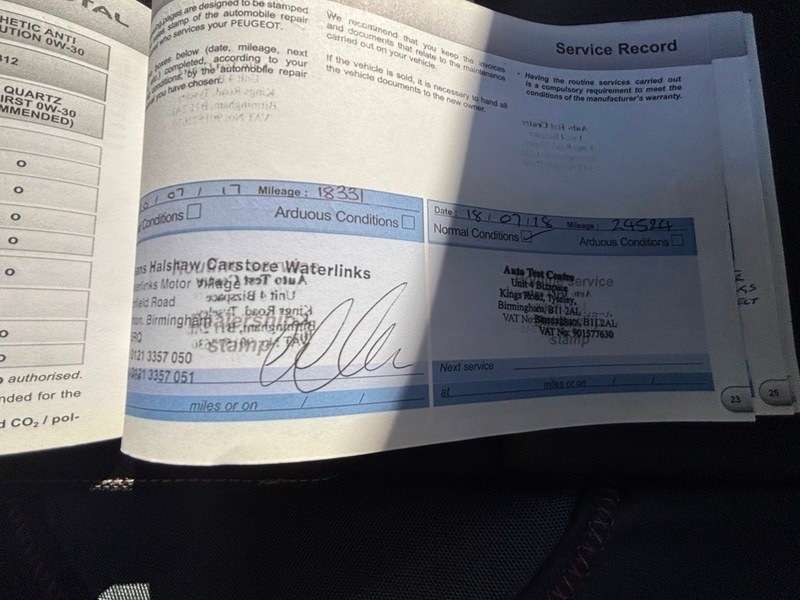 TAL
HETIC ANTI
UTION 0W-30
312
QUARTZ
IRST 0W-30
MMENDED)
O
O
O
O
O
O
O
authorised.
nded for the
d CO₂ / pol-
pages are designed to be stamped
stamp of the automobile repair
who services your PEUGEOT.
boxes below (date, mileage, next
completed, according to your
conditions, by the automobile repair
you have chosen.
We recommend that you keep the invoices
and documents that relate to the maintenance
carried out on your vehicle.
If the vehicle is sold, it is necessary to hand all
the vehicle documents to the new owner.
Service Record
• Having the routine services carried out
is a compulsory requirement to meet the
conditions of the manufacturer's warranty.
/ 07 / 17 Mileage : 18331
Conditions Arduous Conditions
ans Halshaw Carstore Waterlinks
erlinks Motor Village
field Road
Birmingham
0121 3357 050
0121 3357 051
dealership's
stamp
miles or on / /
Date : 18 / 07 / 18 Mileage : 24524
Normal Conditions Arduous Conditions
Auto Test Centre
Unit 4 Bizspace
Kings Road, Tyseley,
Birmingham, B11 2AL
VAT No
Birmingham, B11 2AL
VAT No: 901577630
service
stamp
Next service
at miles or on / /
23
25